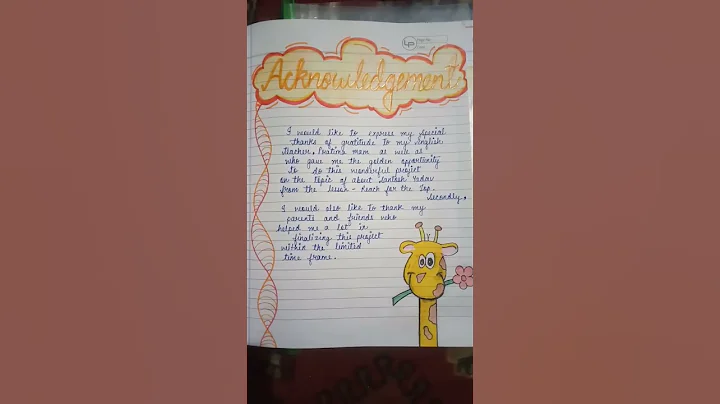 Acknowledgement
I would like to express my special
thanks of gratitude to my english
teacher, mam as well as
who gave me the golden opportunity
to do this wonderful project
on the topic of about Santosh Yadav
from the lesson - Reach for the Top.
Secondly,
I would also like to thank my
parents and friends who
helped me a lot in
finalizing this project
within the limited
time frame.